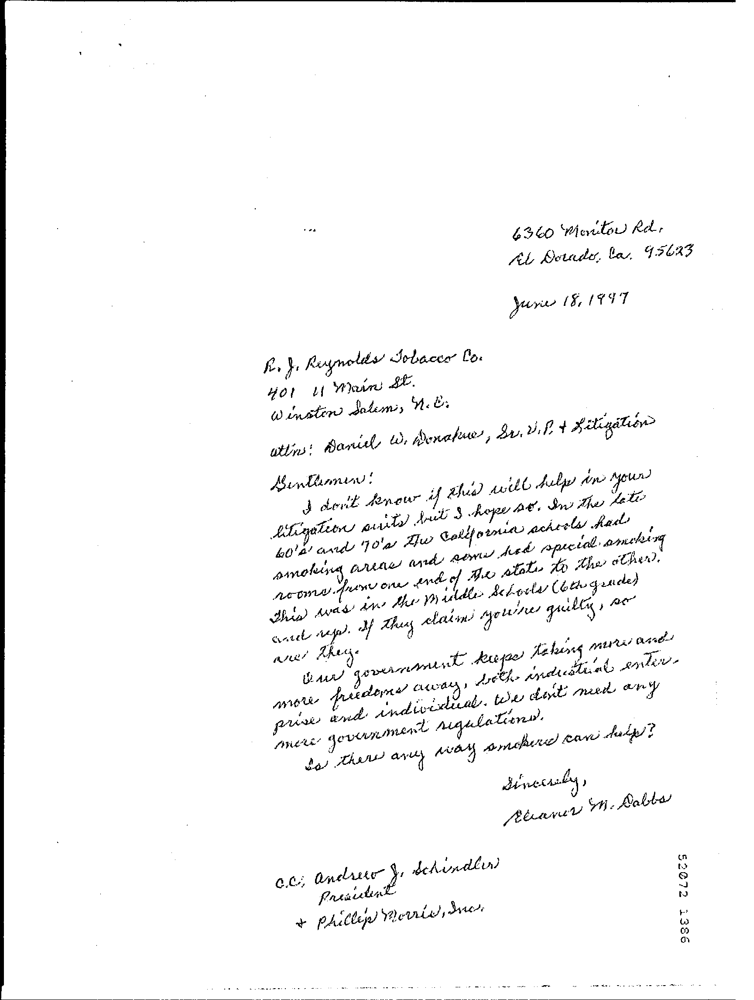 6360 Monitor Rd.
El Dorado, Ca. 95623
June 18, 1997
R. J. Reynolds Tobacco Co.
401 N Main St.
Winston Salem, N.C.
Attn: Daniel W. Donahue, Sr. V.P. + Litigation
Gentlemen:
I don't know if this will help in your
litigation suits but I hope so. In the late
60's and 70's the California schools had
smoking areas and some had special smoking
rooms from one end of the state to the other.
This was in the Middle Schools (6th grade)
and up. If they claim you're guilty, so
are they.
Our government keeps taking more and
more freedoms away, both industrial enter-
prise and individual. We don't need any
more government regulations.
Is there any way smokers can help?
Sincerely,
Eleanor M. Dabbs
C.C. Andrew J. Schindler
President
+ Phillip Morris, Inc.
52072 1386